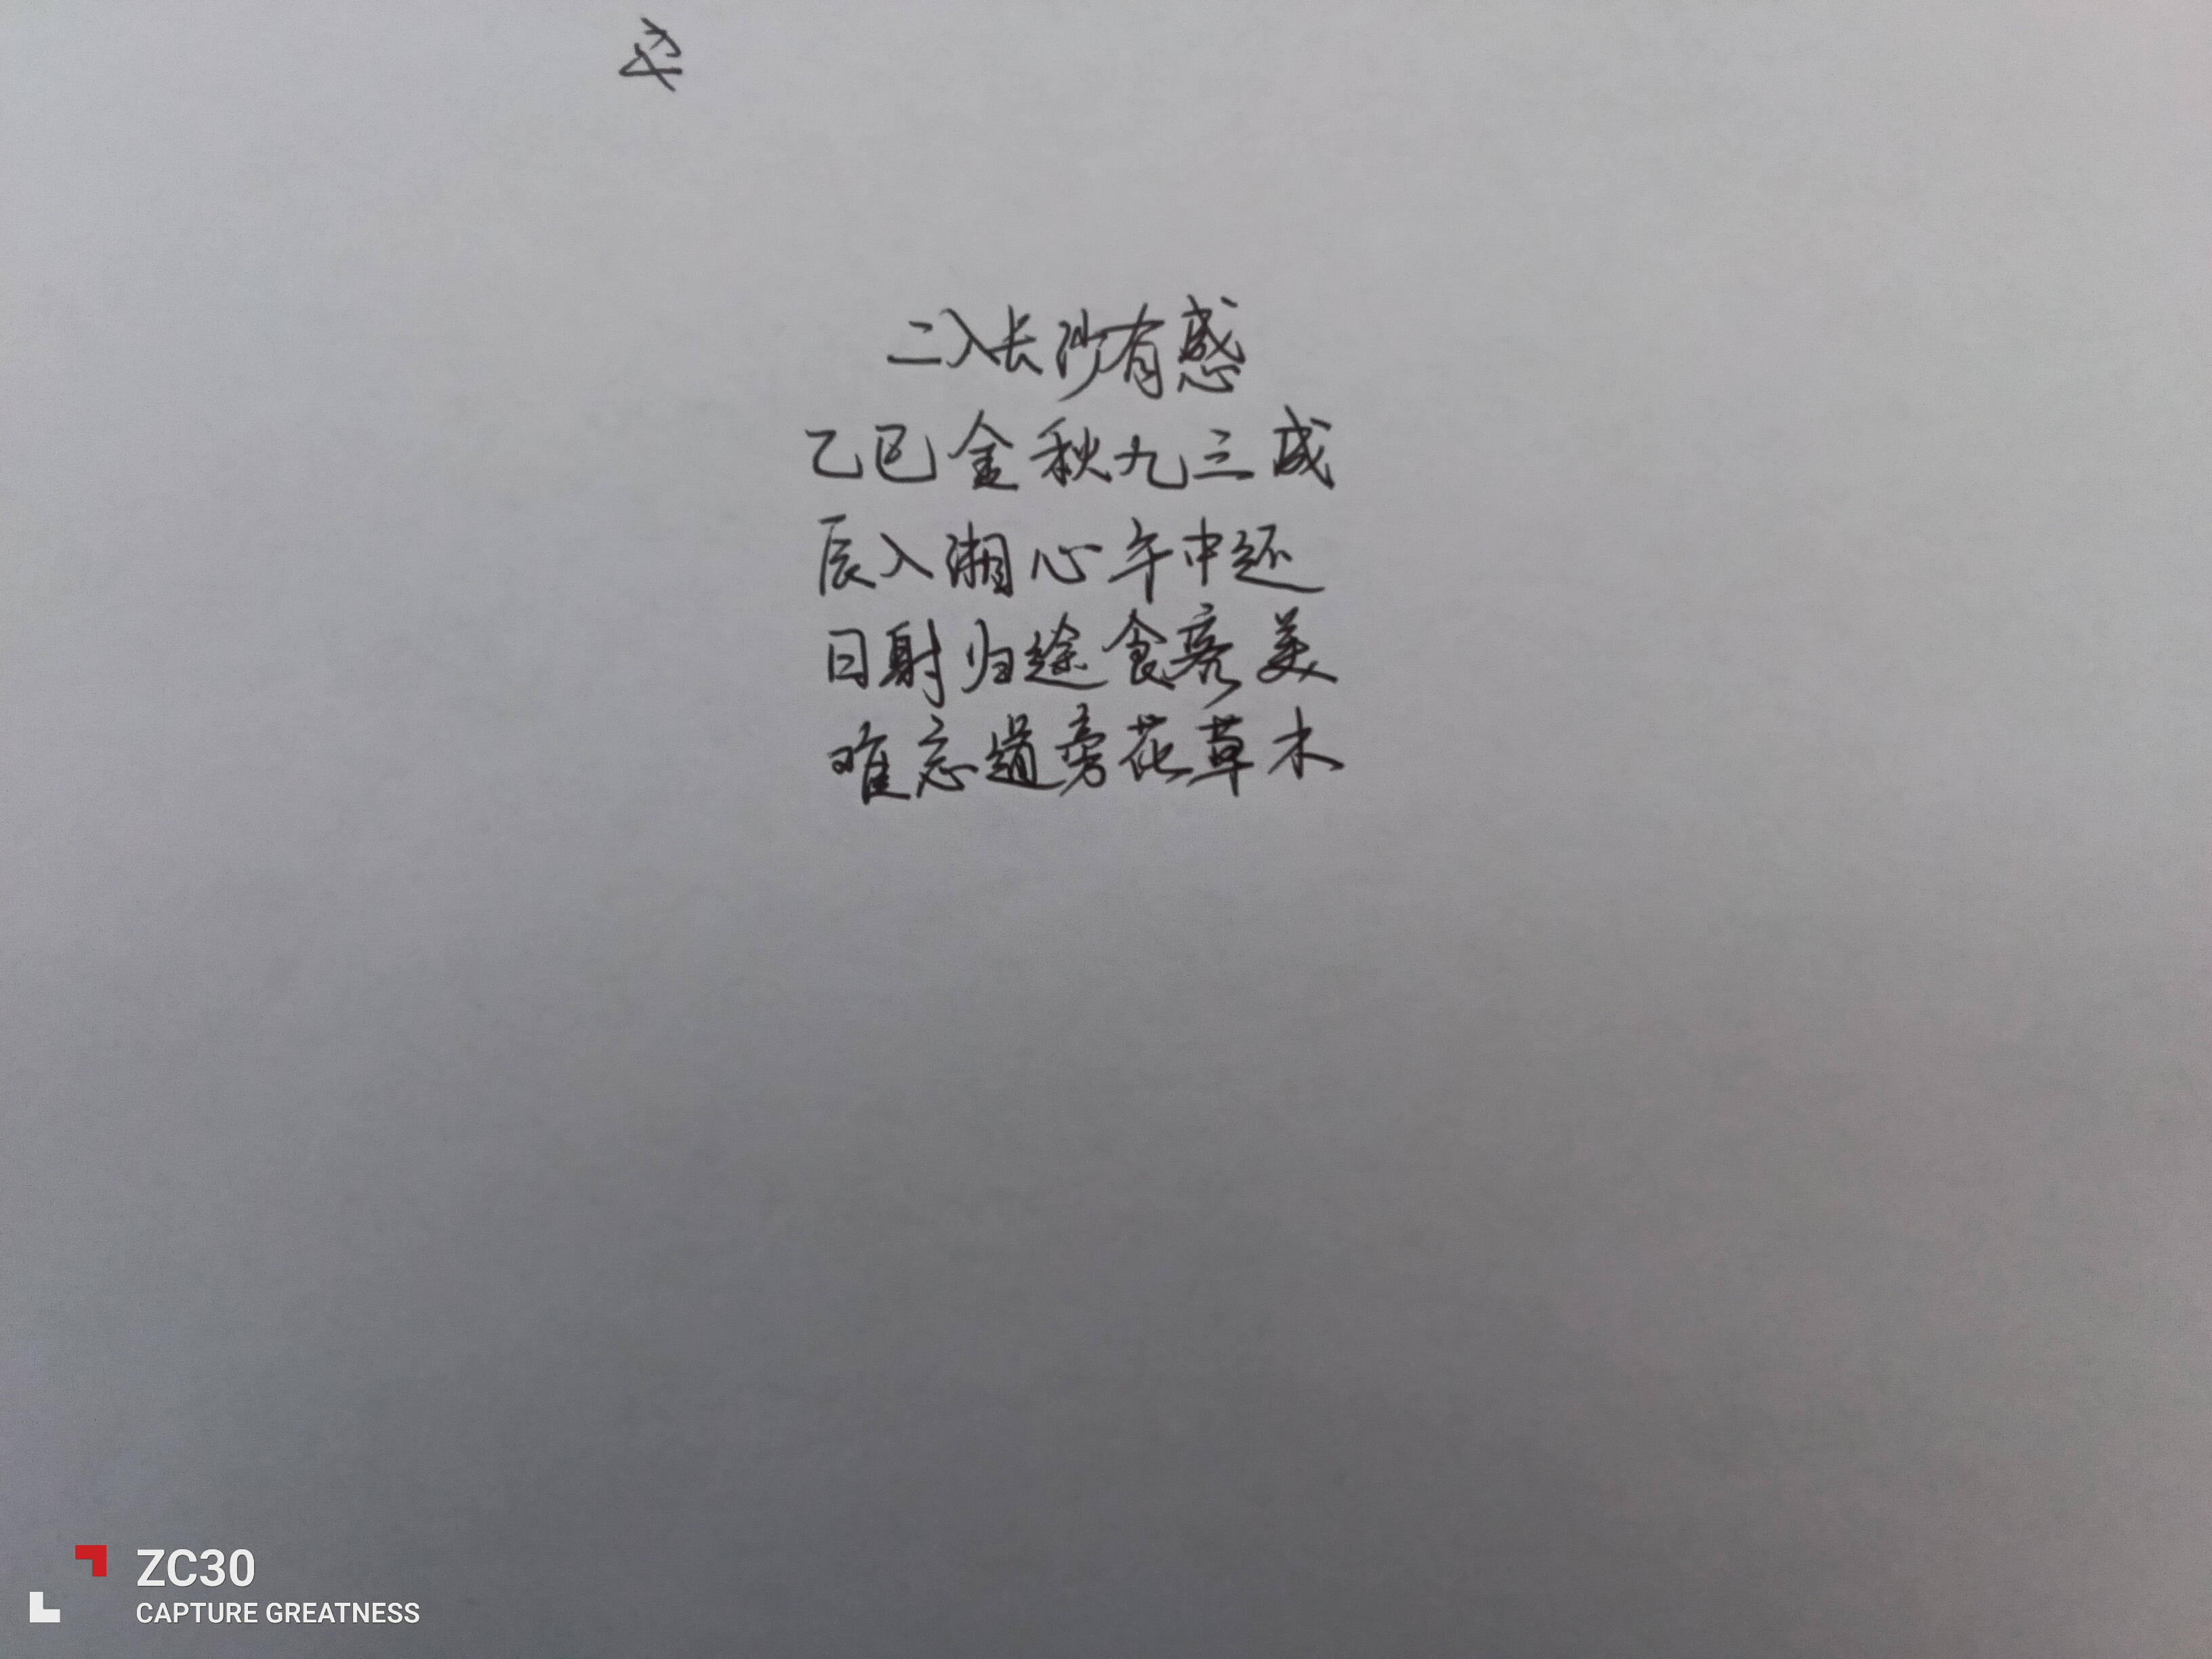 二入长沙有感
乙巳金秋九三成
辰入湘心午中还
日射归途食亮美
难忘道旁花草木
ZC30
CAPTURE GREATNESS